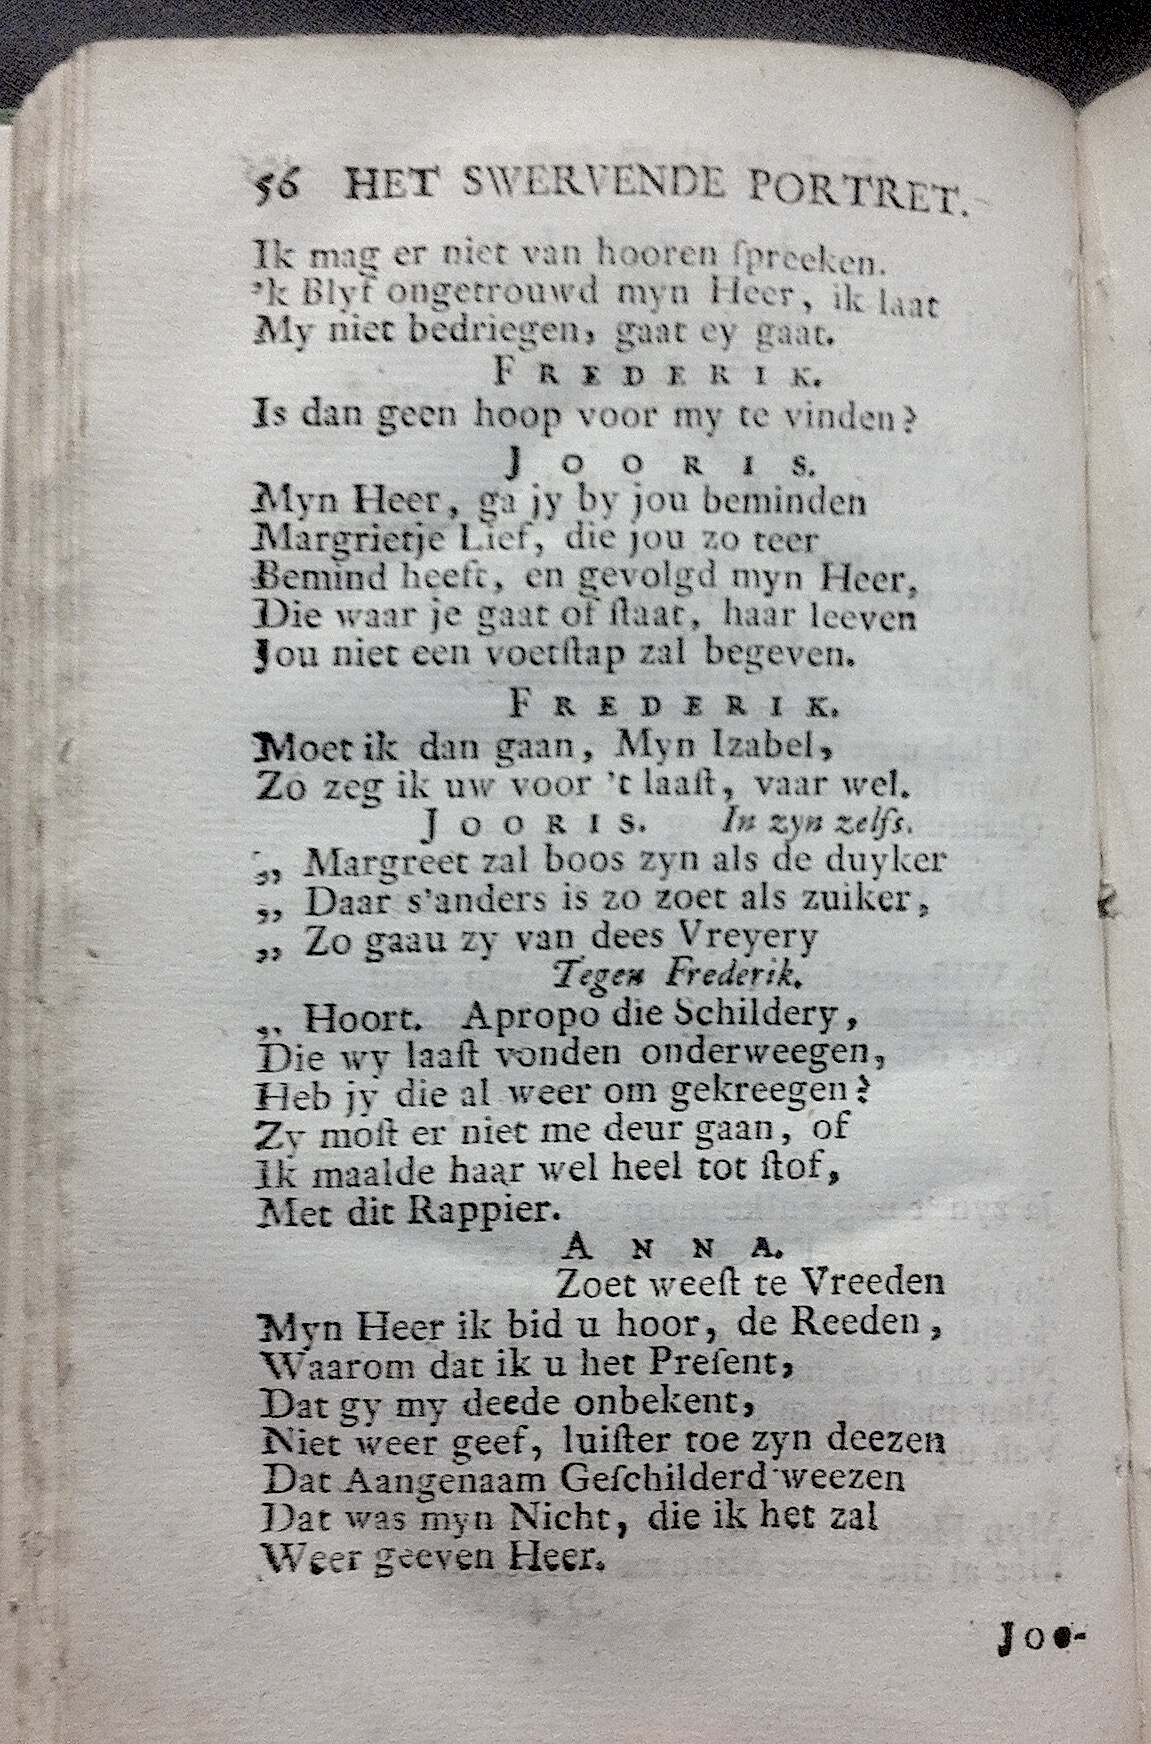 56 HET SWERVENDE PORTRET.
Ik mag er niet van hooren ſpreeken.
'k Blyf ongetrouwd myn Heer, ik laat
My niet bedriegen, gaat ey gaat.
FREDERIK.
Is dan geen hoop voor my te vinden?
JOORIS.
Myn Heer, ga jy by jou beminden
Margrietje Lief, die jou zo teer
Bemind heeft, en gevolgd myn Heer,
Die waar je gaat of ſtaat, haar leeven
Jou niet een voetſtap zal begeven.
FREDERIK.
Moet ik dan gaan, Myn Izabel,
Zo zeg ik uw voor 't laaſt, vaar wel.
JOORIS. In zyn zelfs.
„ Margreet zal boos zyn als de duyker
„ Daar s'anders is zo zoet als zuiker,
„ Zo gaau zy van dees Vreyery
Tegen Frederik.
„ Hoort. Apropo die Schildery,
Die wy laaſt vonden onderweegen,
Heb jy die al weer om gekreegen?
Zy moſt er niet me deur gaan, of
Ik maalde haar wel heel tot ſtof,
Met dit Rappier.
ANNA.
Zoet weeſt te Vreeden
Myn Heer ik bid u hoor, de Reeden,
Waarom dat ik u het Preſent,
Dat gy my deede onbekent,
Niet weer geef, luiſter toe zyn deezen
Dat Aangenaam Geſchilderd weezen
Dat was myn Nicht, die ik het zal
Weer geeven Heer.
Joo-